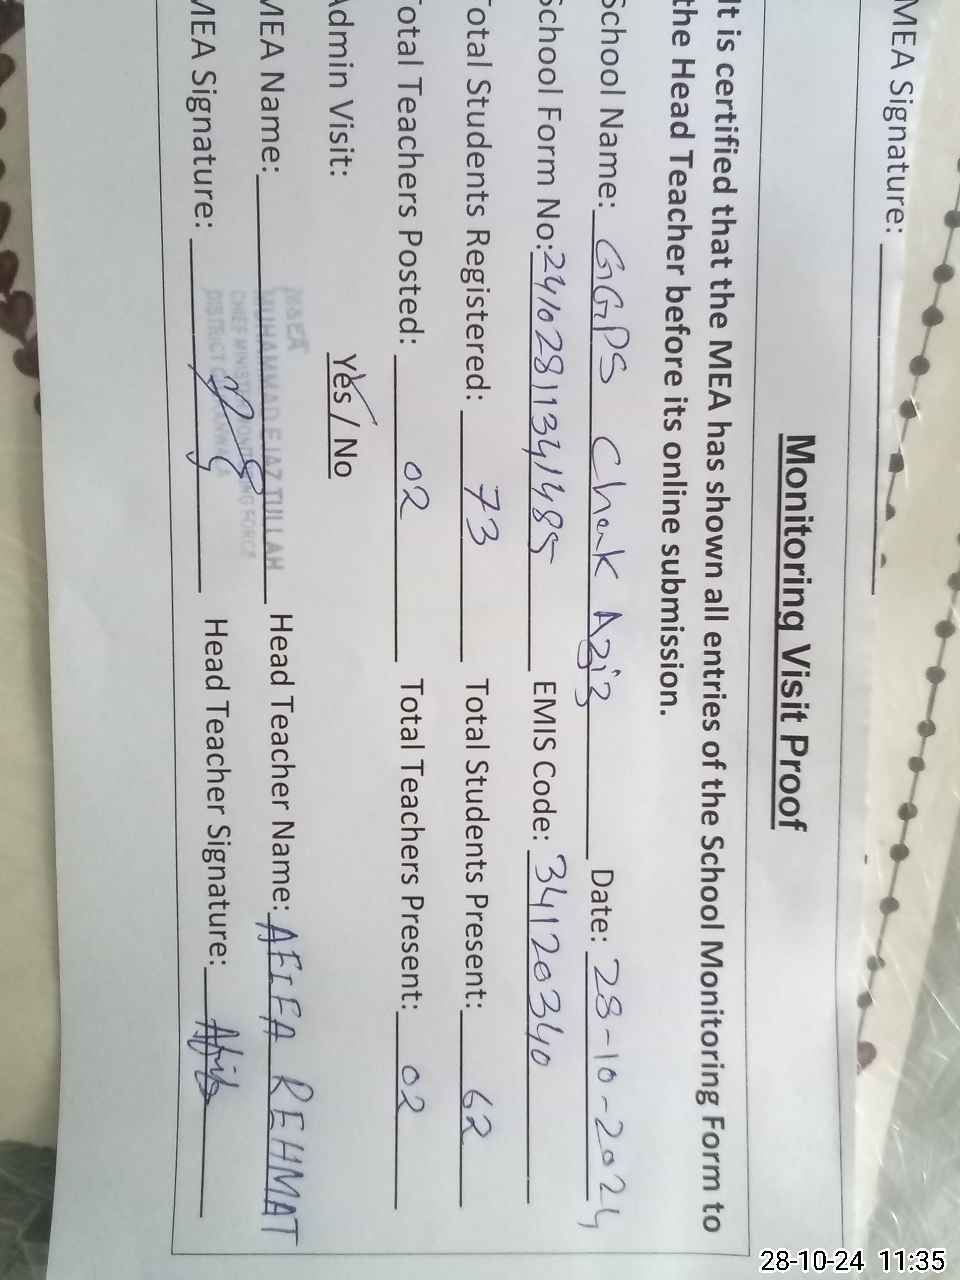 MEA Signature:
Monitoring Visit Proof
It is certified that the MEA has shown all entries of the School Monitoring Form to
the Head Teacher before its online submission.
School Name: GGPS Chak Aziz Date: 28-10-2024
School Form No: 24102811341485 EMIS Code: 34120340
Total Students Registered: 73 Total Students Present: 62
Total Teachers Posted: 02 Total Teachers Present: 02
Admin Visit: Yes / No
MEA Name: Head Teacher Name: AFIFA REHMAT
MUHAMMAD EJAZ TULLAH
CHIEF MINISTER MONITORING FORCE
DISTRICT
MEA Signature: Head Teacher Signature: Afifa
28-10-24 11:35